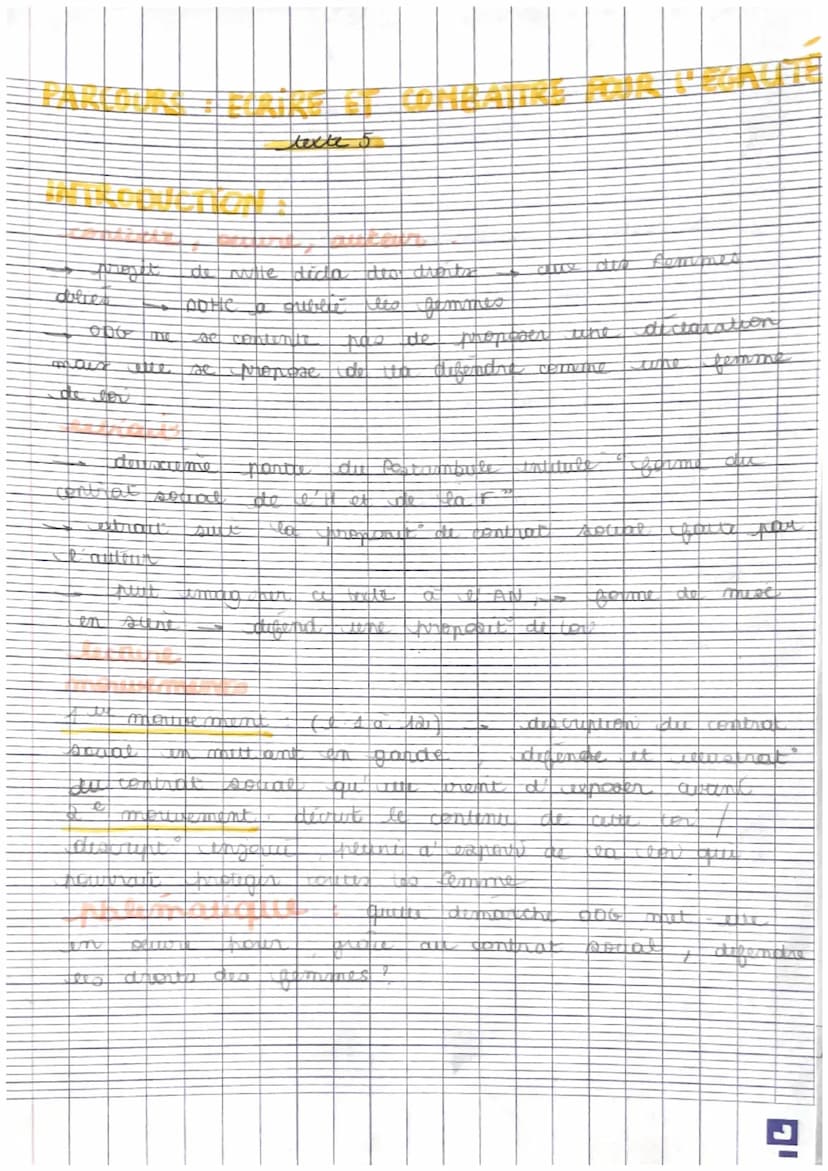 PARCOURS : ECRIRE ET COMBATTRE POUR L'EGALITÉ
texte 5
INTRODUCTION :
contexte, œuvre, auteur.
→ projet de nvlle décla des droits → ceux des femmes
oubliés → DDHC a oublié les femmes
→ ODG ne se contente pas de proposer une déclaration
mais elle se propose de la défendre comme une femme
de loi
extraits
→ deuxième partie du Postambule intitulé "forme du
contrat social de l'H et de la F"
→ extrait suit la proposit° de contrat social faite par
l'auteur
→ peut imaginer ce texte à l'AN → forme de mise
en scène → défend une proposit° de loi
lecture
mouvements
1er mouvement : (l 1 à 12) → description du contrat
social en mettant en garde, défense et illustrat°
du contrat social qu'elle vient d'exposer avant
2e mouvement : décrit le contenu de cette loi /
descript° pleine d'espoir de la loi qui
pourrait protéger toutes les femme
pblématique : quelle démarche ODG met-elle
en œuvre pour grâce au contrat social, défendre
les droits des femmes ?